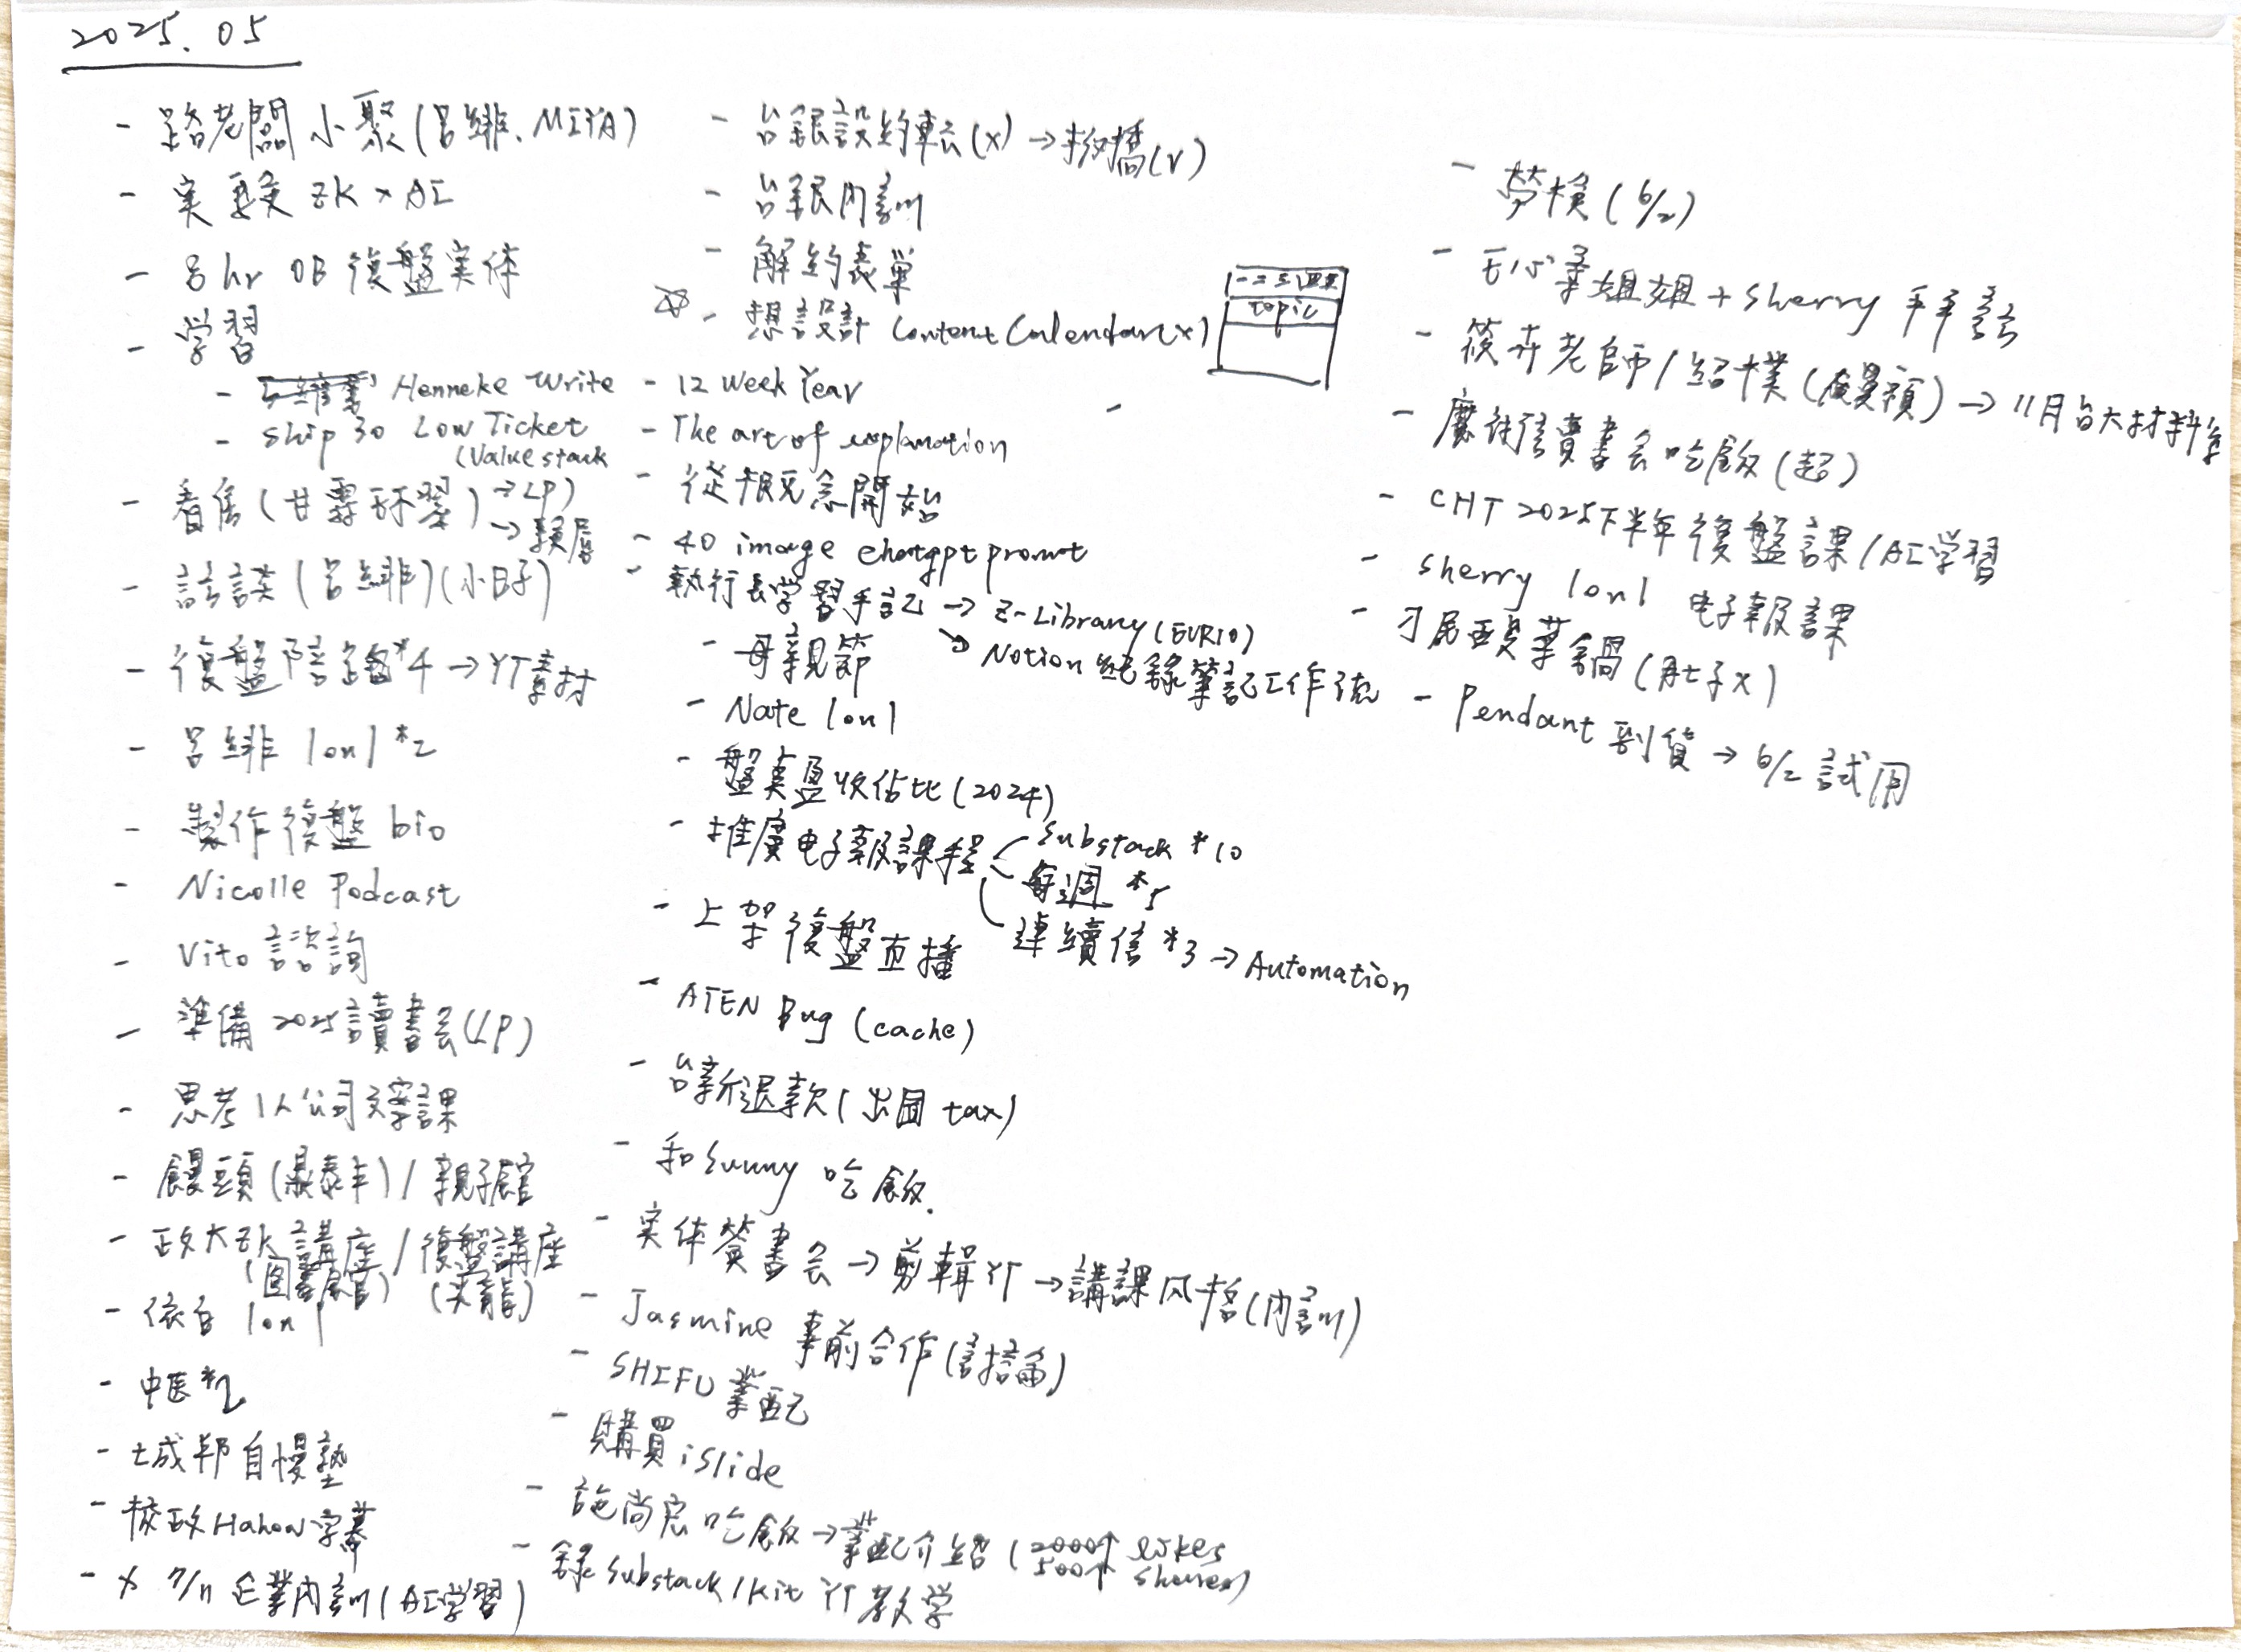 2025.05
- 路老闆小聚(呂緋、MIYA)
- 実驗 ZK × AI
- 8hr OB 復盤実体
- 学習
- Henneke Write
- Ship 30 Low Ticket
(Value stack
- 看房(甘霖環翠) → LP)
→ 頸肩
- 訪談(呂緋)(小日子)
- 復盤陪跑*4 → YT素材
- 呂緋 1on1 *2
- 製作復盤 bio
- Nicolle Podcast
- Vito 諮詢
- 準備 2025讀書会(LP)
- 思考1人公司文案課
- 饅頭(鼎泰丰) / 親子館
- 政大ZK講座 / 復盤講座
(図書館) (夾龍)
- 依白 1on1
- 中医*2
- 城邦自慢塾
- 校政Hahow字幕
- × 7/11 企業內訓(AI学習)
- 台銀設約轉(×) → 板橋(v)
- 台銀內訓
- 解約表單
- 想設計 Content Calendar(×)
一二三四五
topic
- 12 Week Year
- The art of explanation
- 從概念開始
- 40 image chatgpt promt
- 執行長学習手記 → Z-Library (EUR10)
→ Notion 紀錄筆記工作流
- 母親節
- Nate 1on1
- 盤点盈收佔比(2024)
- 推廣电子報課程 Substack *10
每週 *5
連續信 *3 → Automation
- 上架復盤直播
- ATEN Bug (cache)
- 台新退款(出国 tax)
- 和Sunny 吃飯.
- 実体簽書会 → 剪輯YT → 講課风格(內訓)
- Jasmine 事前合作(討論)
- SHIFU 業配
- 購買 iSlide
- 施尚宏吃飯 → 業配介紹 (2000↑ likes
500↑ shares)
- 錄 Substack / Kit YT 教学
- 勞檢(6/2)
- 毛小柔姐姐 + Sherry 手手訪
- 筱卉老師 / 紹樸(饅頭) → 11月台大材料系
- 廉誠信賣書会吃飯(超)
- CHT 2025下半年復盤課 / AI学習
- Sherry 1on1 电子報課
- 刁民酸菜鍋(肚子×)
- Pendant 到貨 → 6/2 試用